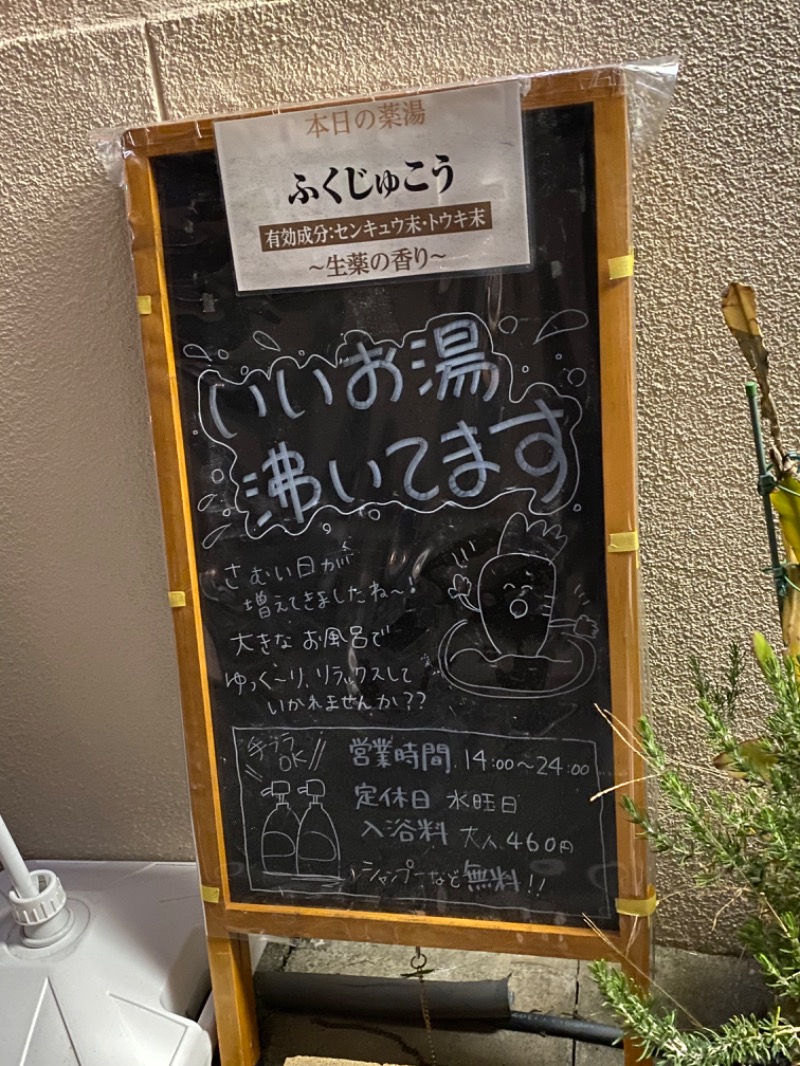 本日の薬湯
ふくじゅこう
有効成分:センキュウ末・トウキ末
～生薬の香り～
いいお湯
沸いてます
さむい日が
増えてきましたね〜!
大きなお風呂で
ゆっく〜り、リラックスして
いかれませんか??
手ブラ
OK!!
営業時間 14:00〜24:00
定休日 水旺日
入浴料 大人460円
シャンプーなど無料!!